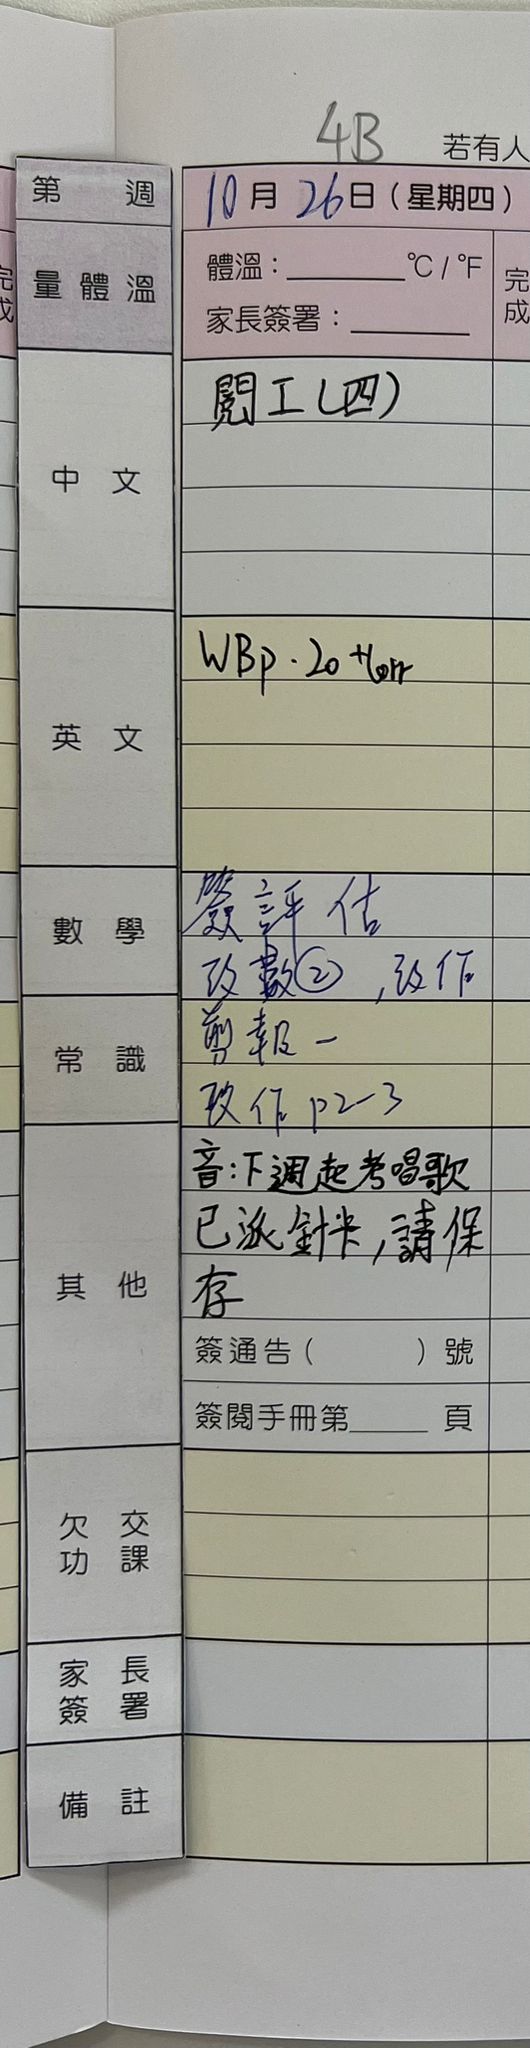 4B
若有人
第 週
10月26日(星期四)
量體溫
體溫：________℃/℉
家長簽署：________
完成
完成
中文
閱工(四)
英文
WBp.20 +Corr
數學
簽評估
改數②,改作
常識
剪報一
改作p2-3
其他
音:下週起考唱歌
已派針卡,請保
存
簽通告( )號
簽閱手冊第_____頁
欠交功課
家長簽署
備註